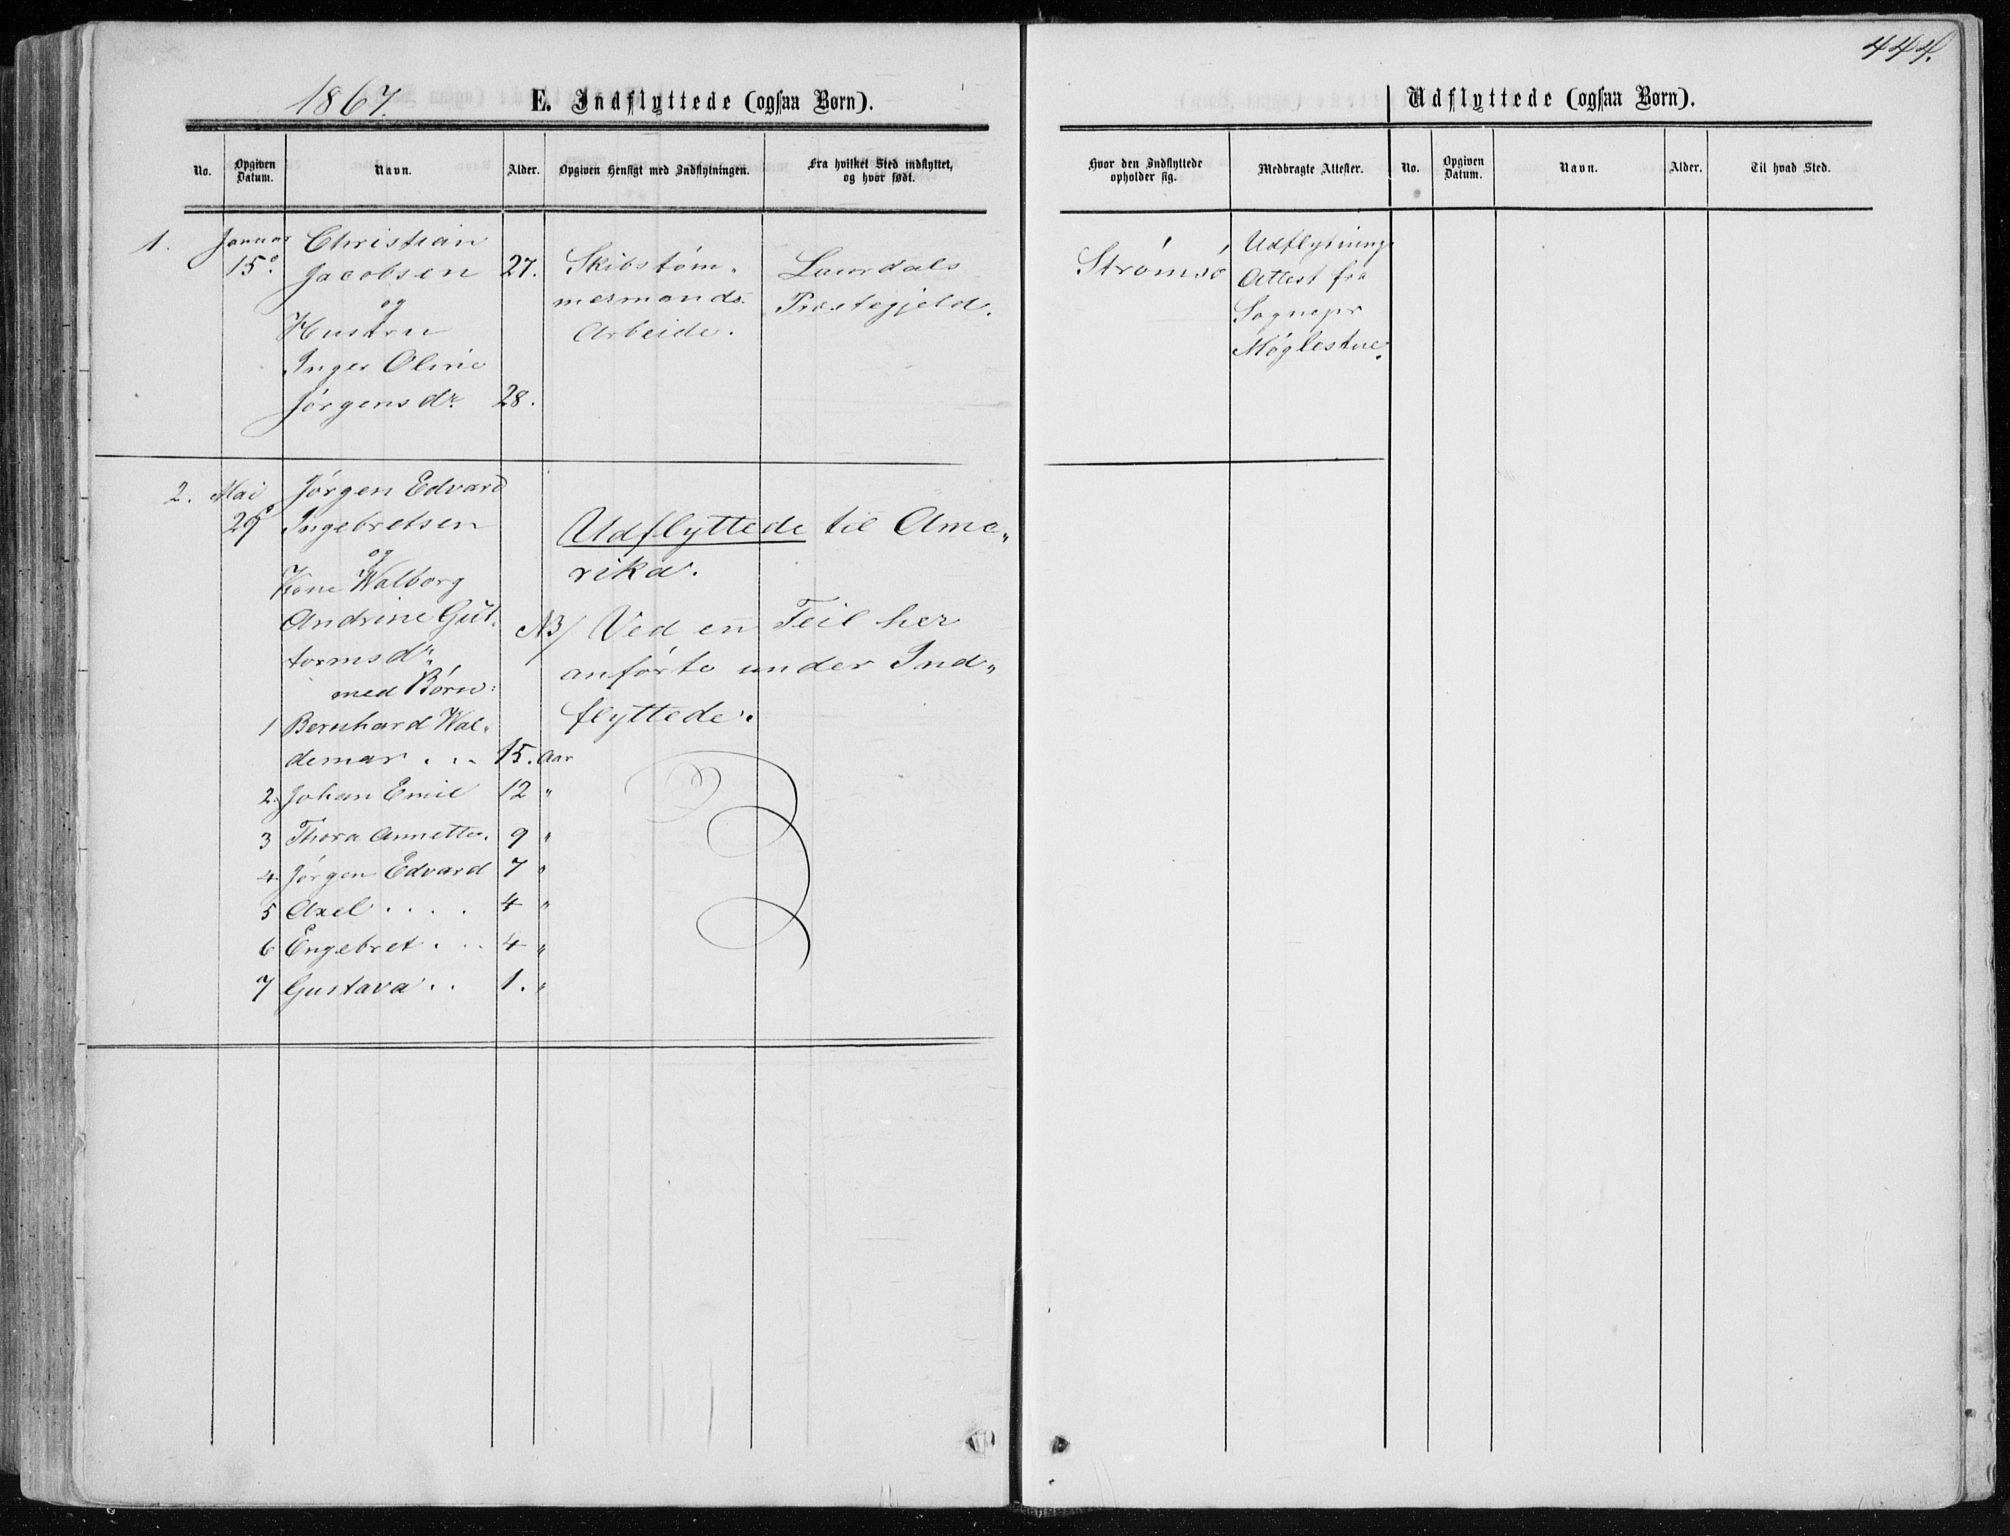 444.
1867.
E. Indflyttede (ogsaa Børn).
Udflyttede (ogsaa Børn).
No.
Opgiven Datum.
Navn.
Alder.
Opgiven Hensigt med Indflytningen.
Fra hvilket Sted indflyttet, og hvor født.
Hvor den Indflyttede opholder sig.
Medbragte Attester.
No.
Opgiven Datum.
Navn.
Alder.
Til hvad Sted.
1. Januar Christian
15de Jacobsen 27.
og
Hustru
Inger Oline
Jørgensdr. 28.
Skibstøm-
mermands.
Arbeide.
Laurdals
Præstegjeld.
Strømsø
Udflytnings
Attest fra
Sognepr
Møglestue.
2. Mai Jørgen Edvard
29 Ingebretsen
og
Kone Walborg
Andrine Gut-
tormsdr.
med Børn:
1 Bernhard Wal-
demar . . . 15. Aar
2. Johan Emil 12 "
3 Thora Annette. 9 "
4. Jørgen Edvard 7 "
5 Axel . . . . 4 "
6 Engebret . . . 4 "
7 Gustava . . 1. "
Udflyttede til Ame-
rika.
NB/ Ved en Feil her
anførte under Ind-
flyttede.